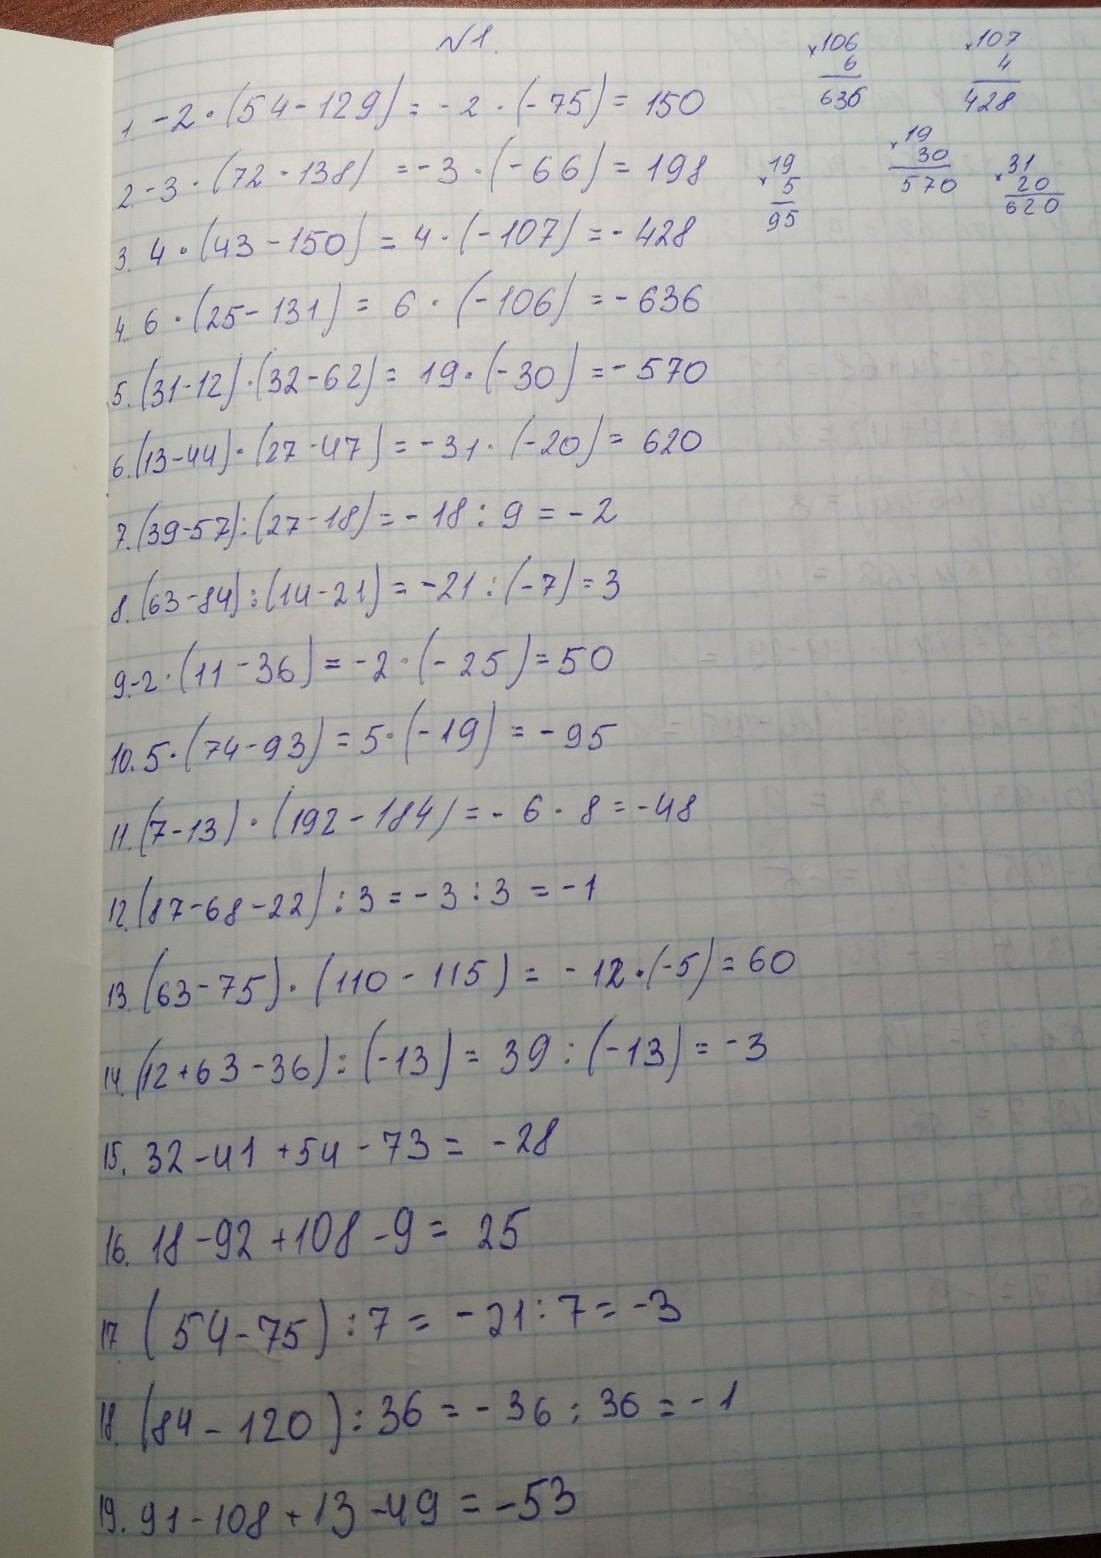 №1.
1. -2·(54-129)=-2·(-75)=150
2. -3·(72-138)=-3·(-66)=198
3. 4·(43-150)=4·(-107)=-428
4. 6·(25-131)=6·(-106)=-636
5. (31-12)·(32-62)=19·(-30)=-570
6. (13-44)·(27-47)=-31·(-20)=620
7. (39-57):(27-18)=-18:9=-2
8. (63-84):(14-21)=-21:(-7)=3
9. -2·(11-36)=-2·(-25)=50
10. 5·(74-93)=5·(-19)=-95
11. (7-13)·(192-184)=-6·8=-48
12. (87-68-22):3=-3:3=-1
13. (63-75)·(110-115)=-12·(-5)=60
14. (12+63-36):(-13)=39:(-13)=-3
15. 32-41+54-73=-28
16. 18-92+108-9=25
17. (54-75):7=-21:7=-3
18. (84-120):36=-36:36=-1
19. 91-108+13-49=-53
×106
6
636
×107
4
428
×19
5
95
×19
30
570
×31
20
620